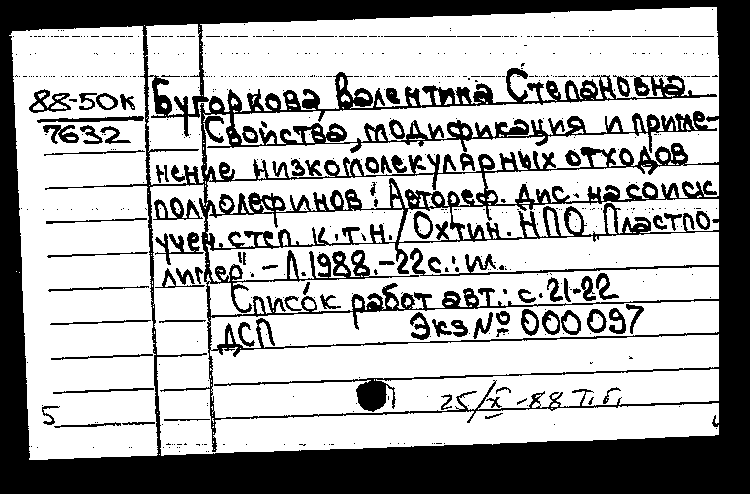 88-50к
7632
Бугоркова, Валентина Степановна.
Свойства, модификация и приме-
нение низкомолекулярных отходов
полиолефинов : Автореф. дис. на соиск
учен. степ. к.т.н. / Охтин. НПО „Пластпо-
лимер". - Л. 1988. - 22 с. : ил.
Список работ авт.: с. 21-22
ДСП Экз № 000097
25/X-88 Т.Г.
5